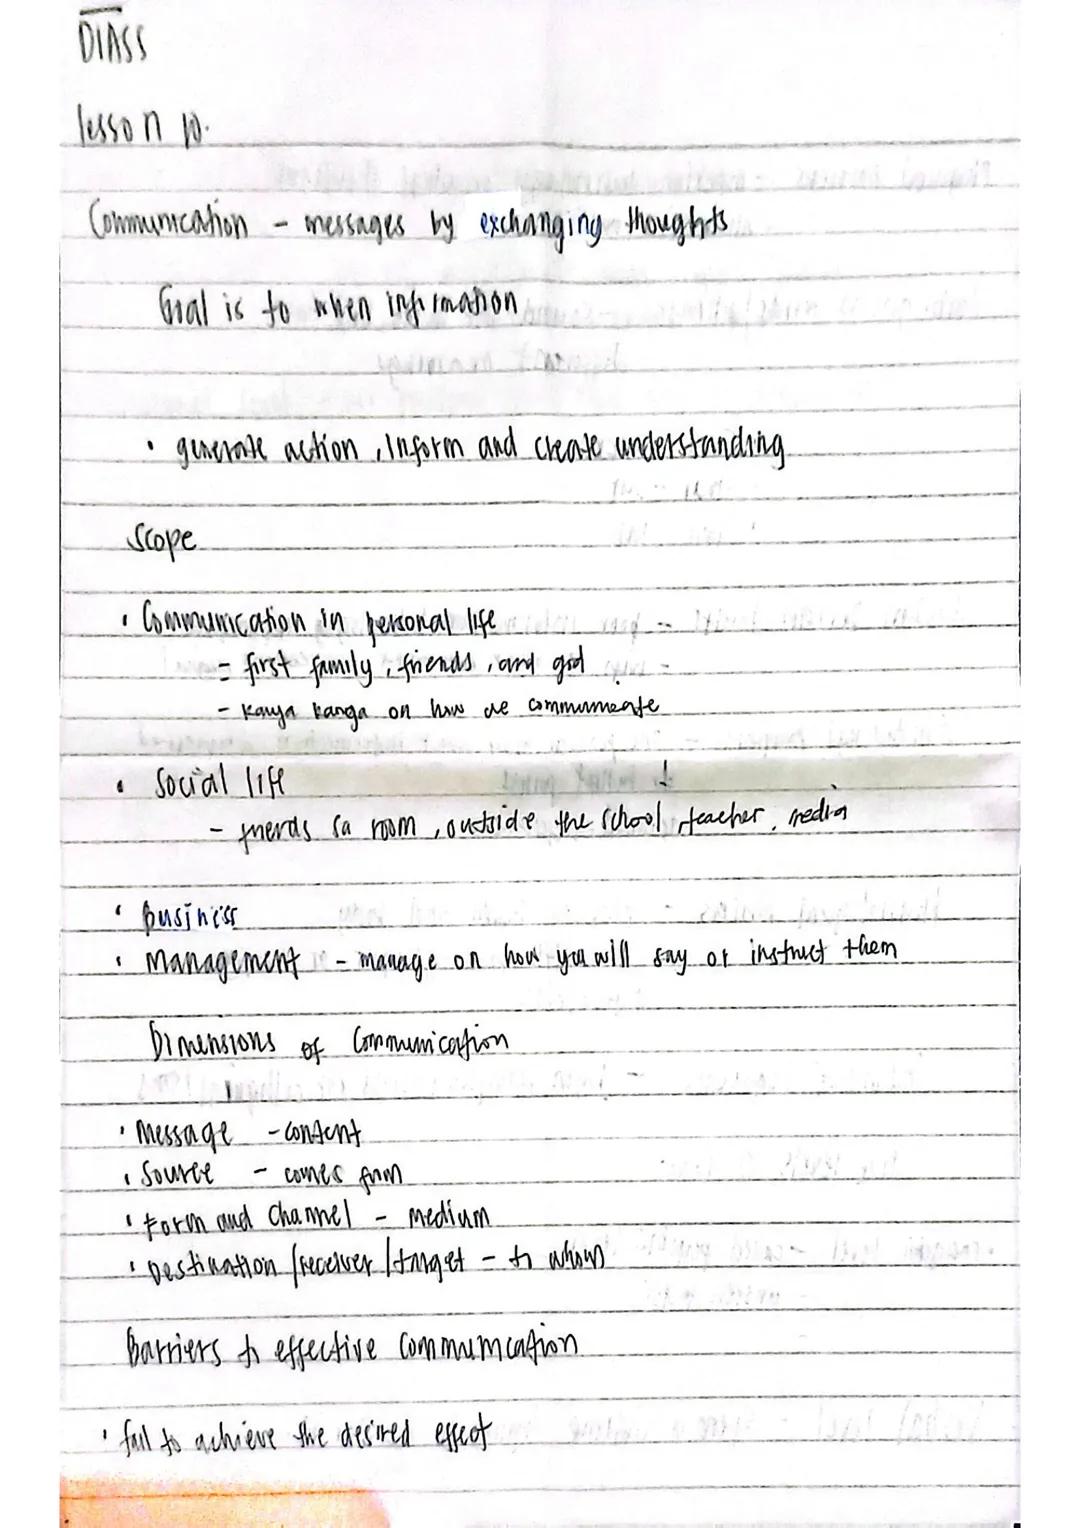 DIASS
lesson 10.
Communication - messages by exchanging thoughts
Goal is to when information
• generate action, Inform and create understanding
Scope
• Communication in personal life
- first family, friends, and god
- kanya kanya on how we communicate
• Social life
- friends sa room, outside the school, teacher, media
• Business
• Management - manage on how you will say or instruct them
Dimensions of Communication
• Message - content
• Source - comes from
• Form and Channel - medium
• Destination /receiver /target - to whom
Barriers to effective communication
• fail to achieve the desired effect